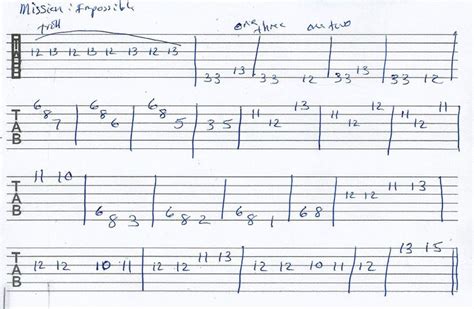 Mission: Impossible
trill one three one two
TAB 12 13 12 13 12 13 12 13 33 13 33 12 13 33 13 33 12
TAB 6 8 7 6 8 6 6 8 5 3 5 11 12 12 11 12 12 11
TAB 11 10 6 8 3 6 8 2 6 8 1 6 8 12 12 11 13
TAB 12 12 10 11 12 12 11 13 12 12 10 11 12 13 15